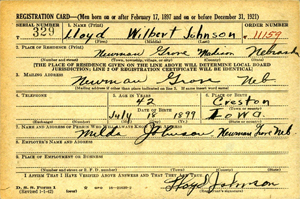 REGISTRATION CARD—(Men born on or after February 17, 1897 and on or before December 31, 1921)
SERIAL NUMBER 1. NAME (Print) ORDER NUMBER
329 Lloyd Wilbert Johnson 11159
(First) (Middle) (Last)
2. PLACE OF RESIDENCE (Print)
Newman Grove Madison Nebraska
(Number and street) (Town, township, village, or city) (County) (State)
[THE PLACE OF RESIDENCE GIVEN ON THE LINE ABOVE WILL DETERMINE LOCAL BOARD
JURISDICTION; LINE 2 OF REGISTRATION CERTIFICATE WILL BE IDENTICAL]
3. MAILING ADDRESS
Newman Grove Neb
[Mailing address if other than place indicated on line 2. If same insert word same]
4. TELEPHONE 5. AGE IN YEARS 6. PLACE OF BIRTH
42 Creston
DATE OF BIRTH
July 18 1899 Iowa
(Mo.) (Day) (Yr.)
7. NAME AND ADDRESS OF PERSON WHO WILL ALWAYS KNOW YOUR ADDRESS
Johnson Newman Grove Neb
8. EMPLOYER'S NAME AND ADDRESS
9. PLACE OF EMPLOYMENT OR BUSINESS
I AFFIRM THAT I HAVE VERIFIED ABOVE ANSWERS AND THAT THEY ARE TRUE.
D. S. S. Form 1
(Revised 1-1-42) (over)
Lloyd Johnson